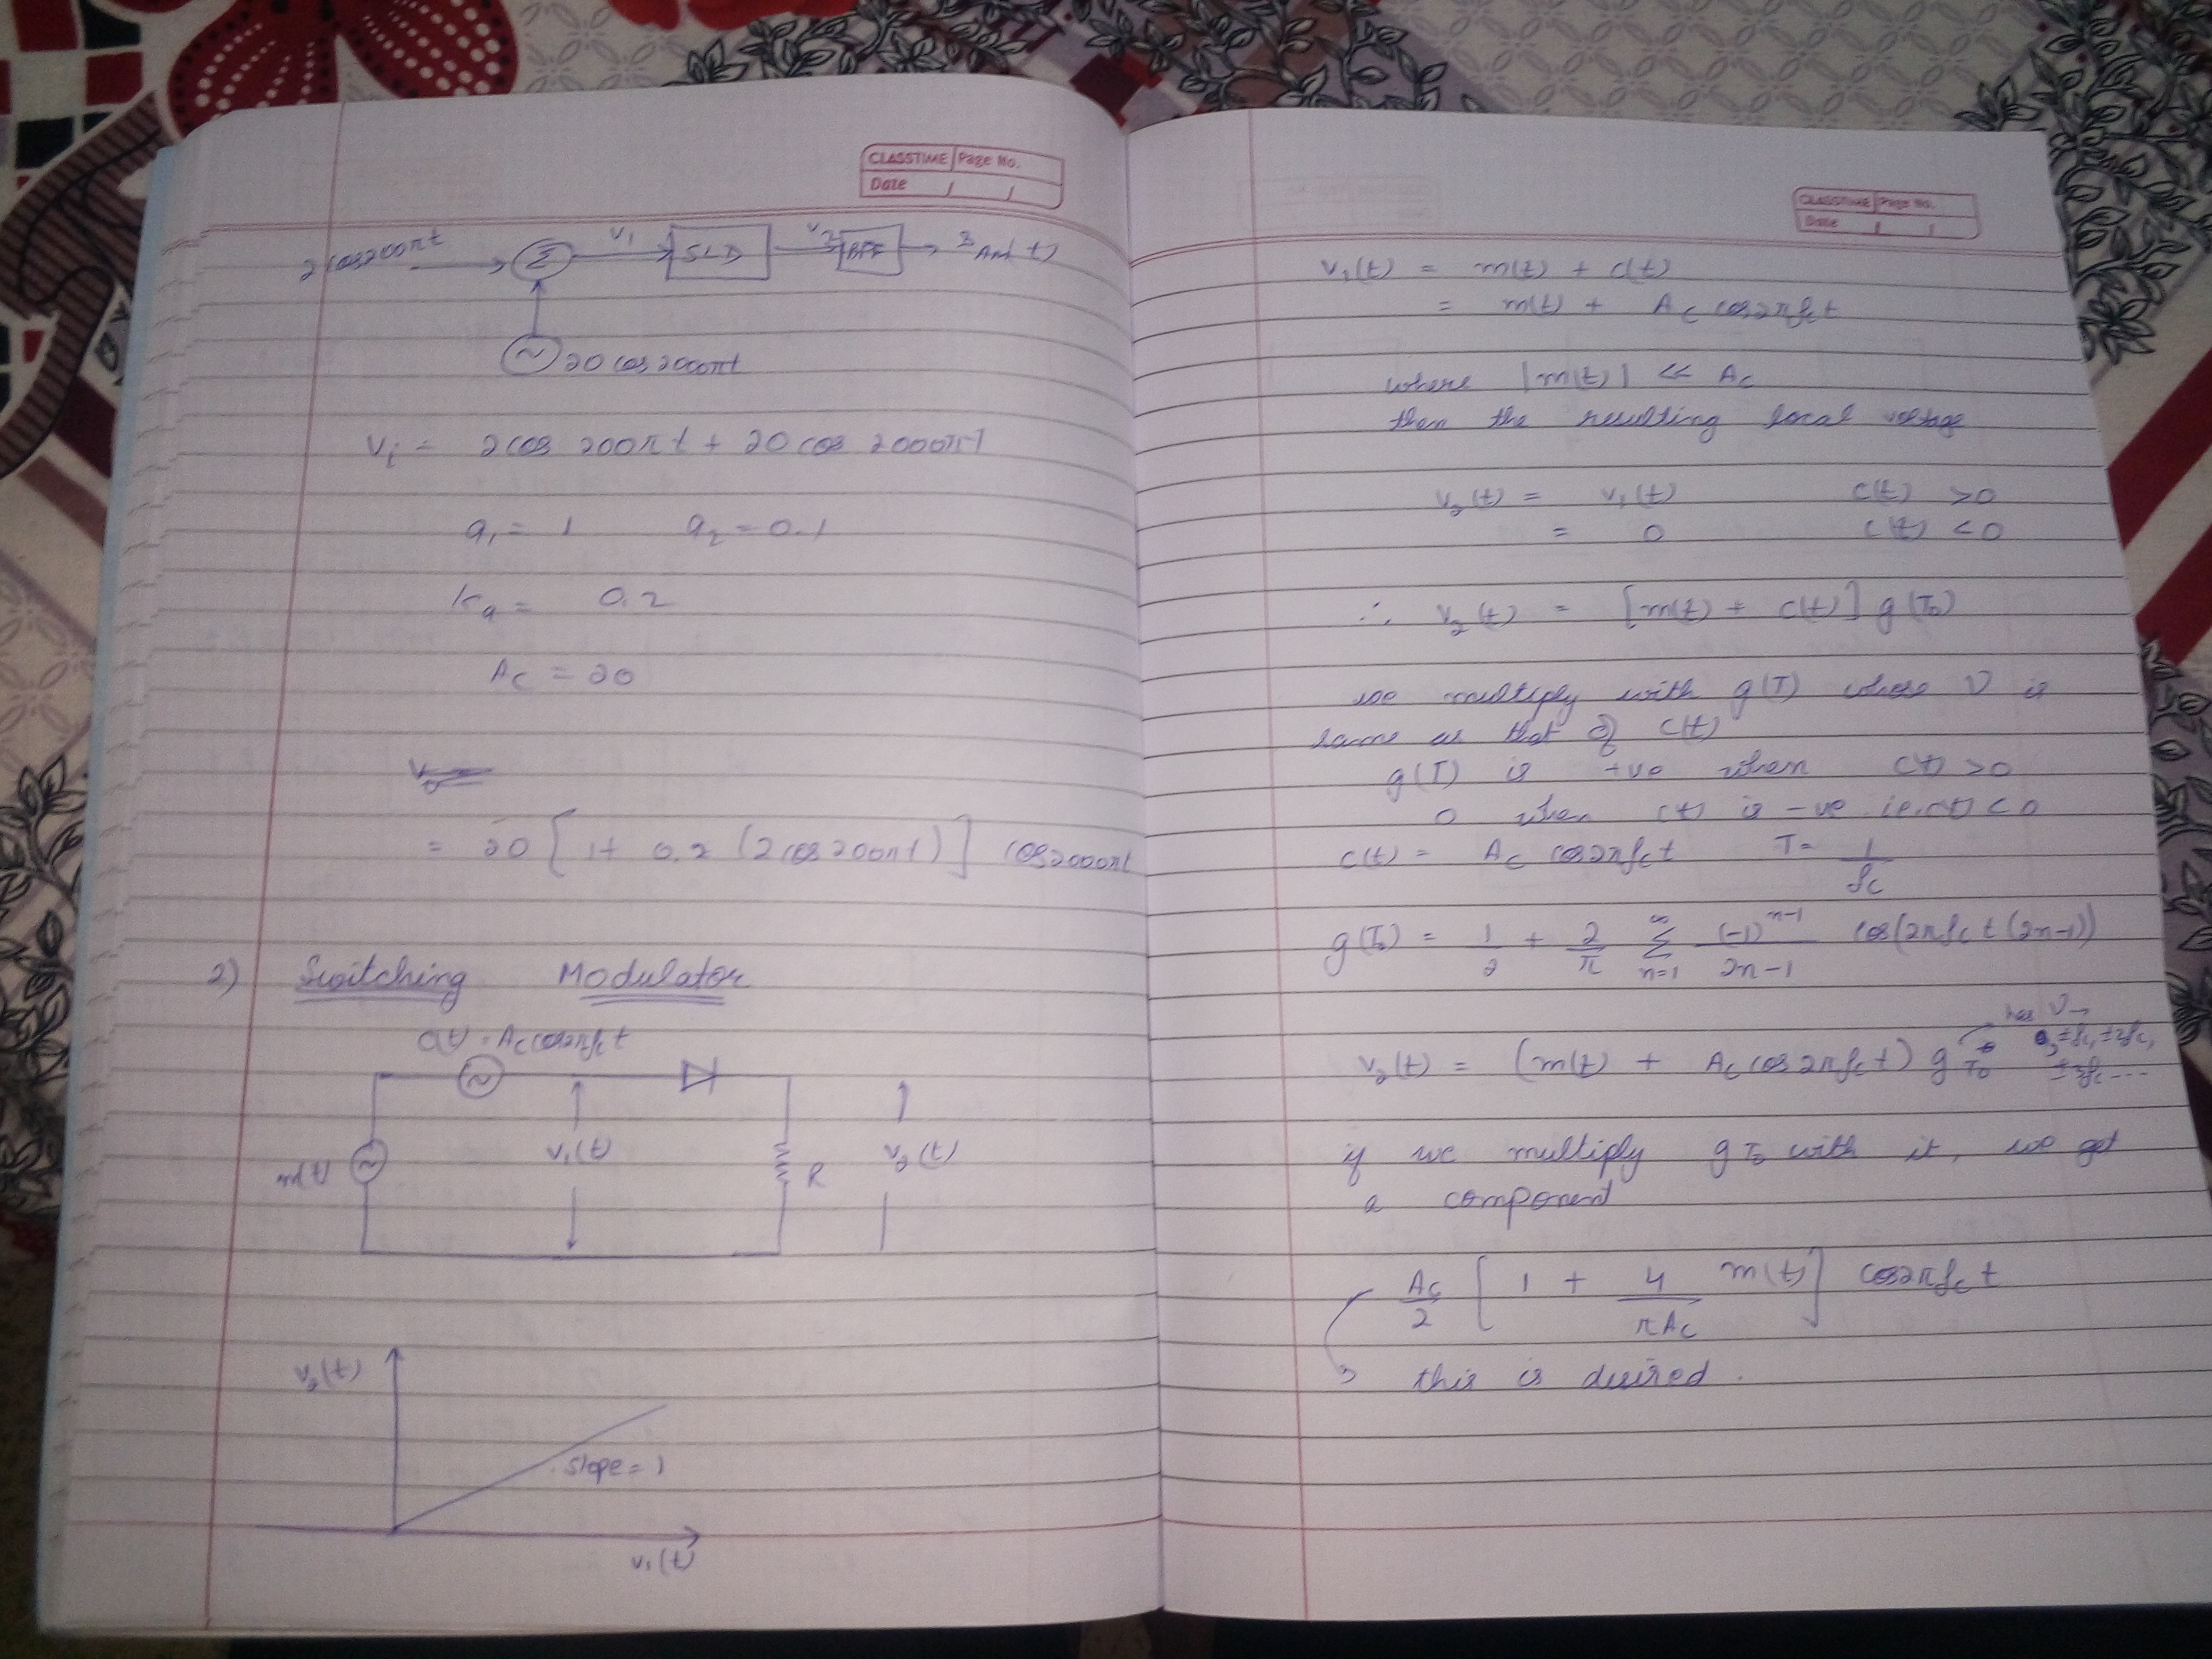 CLASSTIME Page No.
Date / /
2 cos 200πt Σ V₁ SLD V₂ BPF S_AM(t)
~ 20 cos 2000πt
Vi = 2 cos 200πt + 20 cos 2000πt
a₁ = 1 a₂ = 0.1
Ka = 0.2
Ac = 20
= 20 [1 + 0.2 (2 cos 200πt)] cos 2000πt
2) Switching Modulator
c(t) = Ac cos 2πfc t
~
m(t) ~ v₁(t) R v₂(t)
v₂(t)
slope = 1
v₁(t)
CLASSTIME Page No.
Date / /
v₁(t) = m(t) + c(t)
= m(t) + Ac cos 2πfc t
where |m(t)| << Ac
then the resulting local voltage
v₂(t) = v₁(t) c(t) > 0
= 0 c(t) < 0
∴ v₂(t) = [m(t) + c(t)] g(T₀)
we multiply with g(T) where ν is
same as that of c(t)
g(T) is +ve when c(t) > 0
0 when c(t) is -ve i.e. c(t) < 0
c(t) = Ac cos 2πfc t T = 1/fc
g(T₀) = 1/2 + 2/π Σ_{n=1}^{∞} (-1)^{n-1}/(2n-1) cos(2πfc t (2n-1))
v₂(t) = (m(t) + Ac cos 2πfc t) g T₀ has ν → 0, ±fc, ±2fc, ±3fc ...
if we multiply g T₀ with it, we get
a component
Ac/2 [1 + 4/(πAc) m(t)] cos 2πfc t
this is desired.